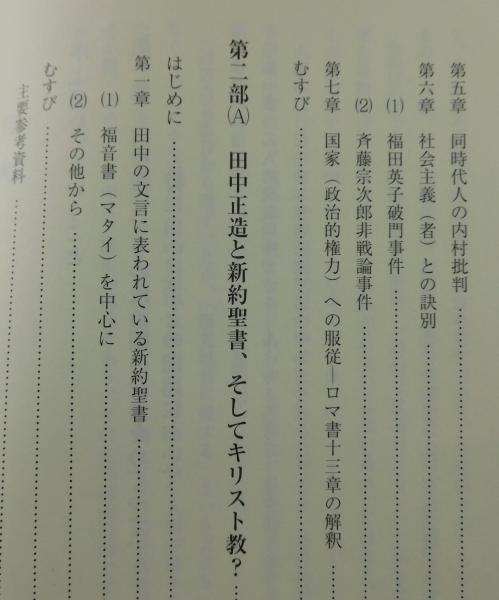 第五章 同時代人の内村批判
第六章 社会主義（者）との訣別
(1) 福田英子破門事件
(2) 斉藤宗次郎非戦論事件
第七章 国家（政治的権力）への服従―ロマ書十三章の解釈
むすび
第二部(A) 田中正造と新約聖書、そしてキリスト教？
はじめに
第一章 田中の文言に表われている新約聖書
(1) 福音書（マタイ）を中心に
(2) その他から
むすび
主要参考資料